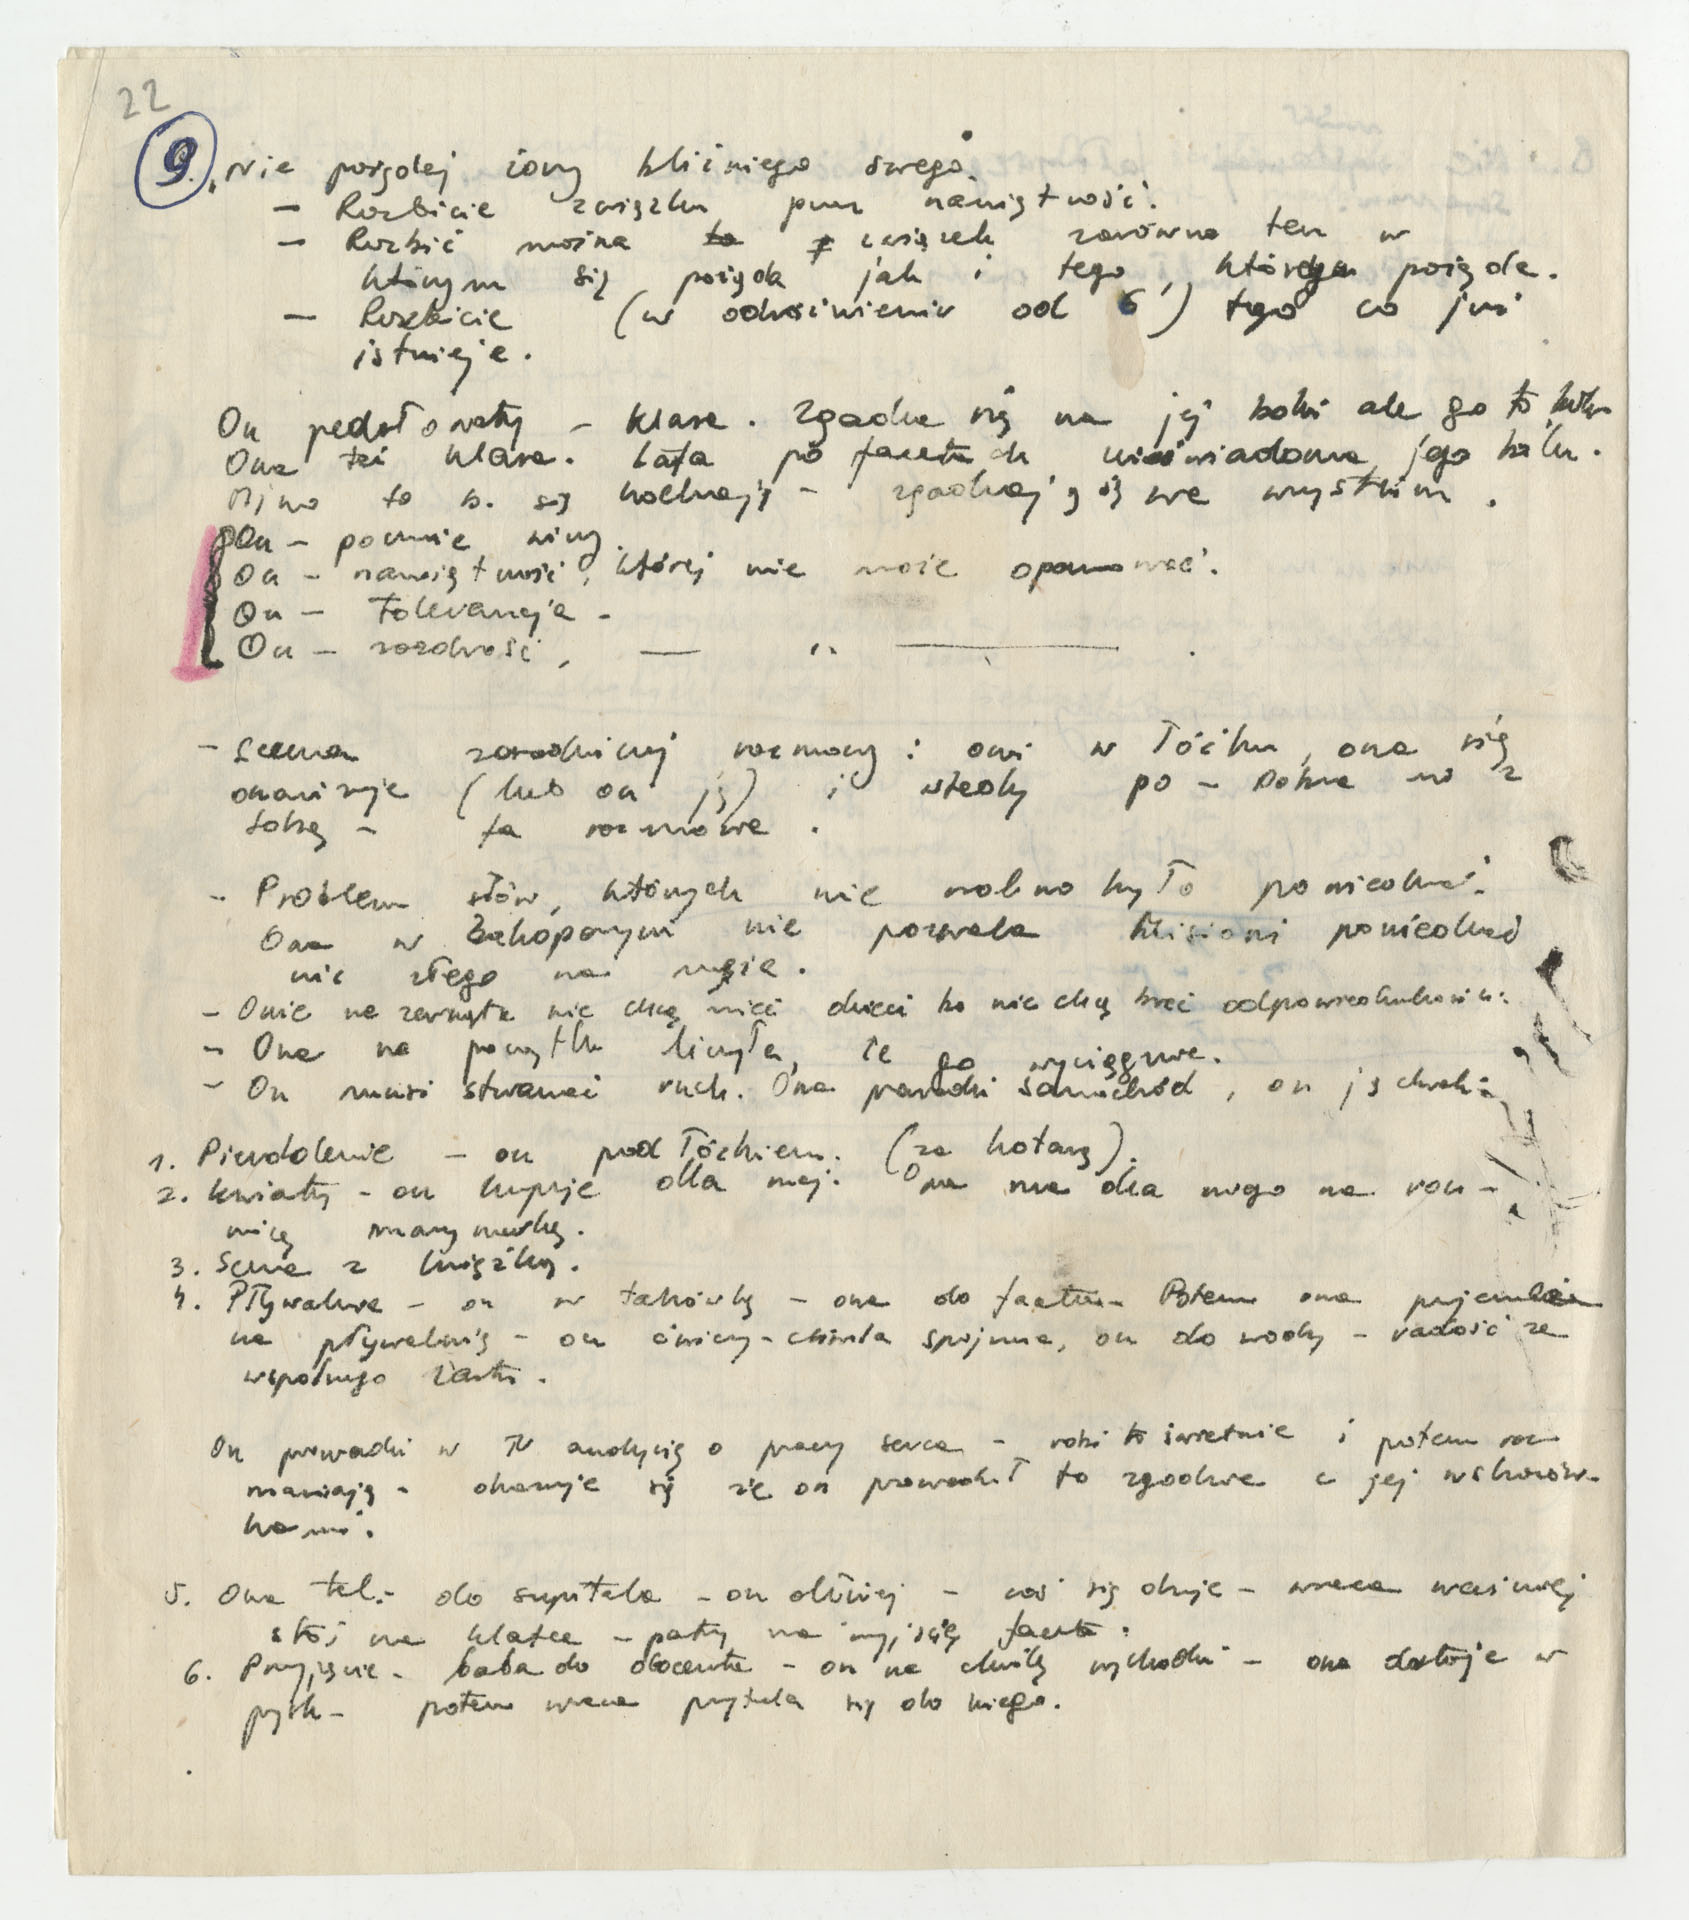 22
9. „Nie pożądaj żony bliźniego swego.
– Rozbicie związku przez namiętność.
– Rozbić można to związek zarówno ten w
którym się pożąda jak i tego, którego pożąda.
– Rozbicie (w odróżnieniu od 6) tego co już
istnieje.
On pedałowaty – klasa. Zgadza się na jej boki ale go to
Ona też klasa. Lata po facetach, uświadomiona, jego bólu.
Mimo to b. się kochają – zgadzają się we wszystkim.
On – poczucie winy
On – namiętność, której nie może opanować.
On – tolerancja –
On – zazdrość, — „ —
– Scena zasadniczej rozmowy: oni w łóżku, ona się
onanizuje (lub on ją) i wtedy po – Dobrze mi z
tobą – ta rozmowa.
– Problem słów, których nie wolno było powiedzieć.
Ona w Zakopanym nie pozwala powiedzieć
nic złego na męża.
– Onie na zewnątrz nie chcą mieć dzieci bo nie chcą brać odpowiedzialności.
– Ona na początku liczyła, że go wyciągnie.
– On musi stwarzać ruch. Ona prowadzi samochód, on
1. Pierdolenie – on pod łóżkiem. (za kotarą).
2. Kwiaty – on kupuje dla niej. Ona ma dla niego na rocz-
nicę marynarkę.
3. Scena z książką.
4. Pływalnia – on w taksówkę – ona do faceta – Potem ona przyjeżdża
na pływalnię – on ćwiczy – chwila spojrzenia, on do wody – radość ze
wspólnego żartu.
On prowadzi w TV audycję o pracy serca – robi to świetnie i potem roz-
mawiają – okazuje się że on prowadził to zgodnie z jej wskazów-
kami.
5. Ona tel. – do szpitala – on dłużej – coś się dzieje – wraca wcześniej
stoi na klatce – patrzy na wyjście faceta.
6. Przyjęcie – baba do docenta – on na chwilę wychodzi – ona dostaje w
pysk – potem wraca przytula się do niego.